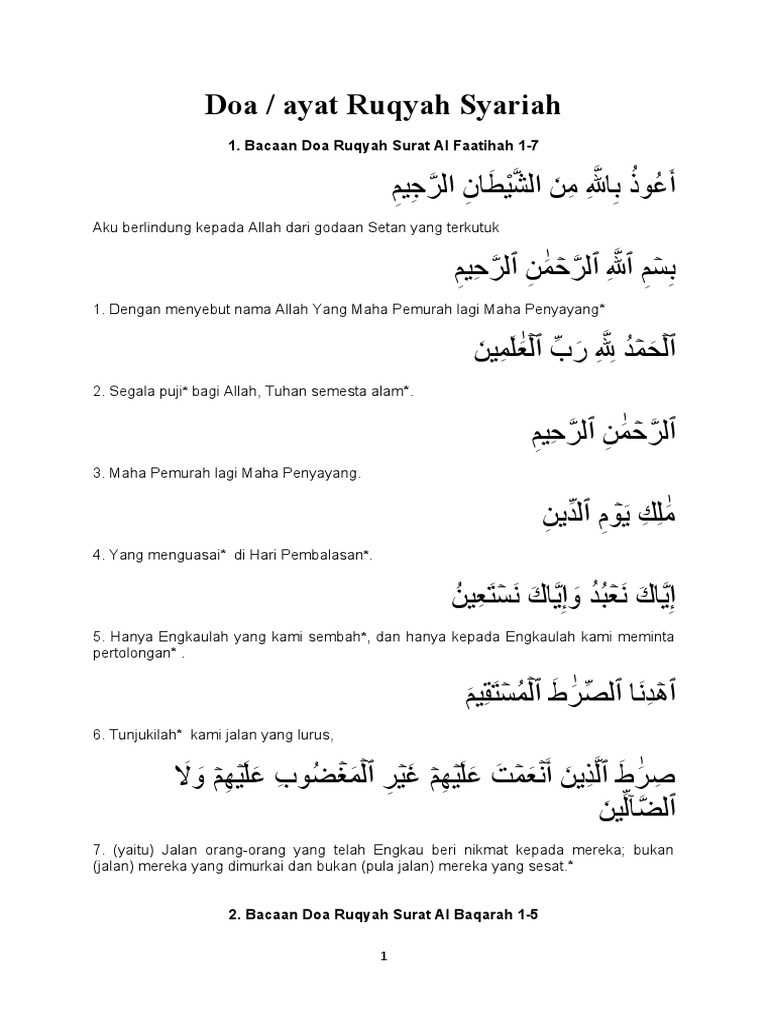 Doa / ayat Ruqyah Syariah
1. Bacaan Doa Ruqyah Surat Al Faatihah 1-7
أَعُوذُ بِاللَّهِ مِنَ الشَّيْطَانِ الرَّجِيمِ
Aku berlindung kepada Allah dari godaan Setan yang terkutuk
بِسۡمِ ٱللَّهِ ٱلرَّحۡمَٰنِ ٱلرَّحِيمِ
1. Dengan menyebut nama Allah Yang Maha Pemurah lagi Maha Penyayang*
ٱلۡحَمۡدُ لِلَّهِ رَبِّ ٱلۡعَٰلَمِينَ
2. Segala puji* bagi Allah, Tuhan semesta alam*.
ٱلرَّحۡمَٰنِ ٱلرَّحِيمِ
3. Maha Pemurah lagi Maha Penyayang.
مَٰلِكِ يَوۡمِ ٱلدِّينِ
4. Yang menguasai* di Hari Pembalasan*.
إِيَّاكَ نَعۡبُدُ وَإِيَّاكَ نَسۡتَعِينُ
5. Hanya Engkaulah yang kami sembah*, dan hanya kepada Engkaulah kami meminta
pertolongan* .
ٱهۡدِنَا ٱلصِّرَٰطَ ٱلۡمُسۡتَقِيمَ
6. Tunjukilah* kami jalan yang lurus,
صِرَٰطَ ٱلَّذِينَ أَنۡعَمۡتَ عَلَيۡهِمۡ غَيۡرِ ٱلۡمَغۡضُوبِ عَلَيۡهِمۡ وَلَا
ٱلضَّآلِّينَ
7. (yaitu) Jalan orang-orang yang telah Engkau beri nikmat kepada mereka; bukan
(jalan) mereka yang dimurkai dan bukan (pula jalan) mereka yang sesat.*
2. Bacaan Doa Ruqyah Surat Al Baqarah 1-5
1